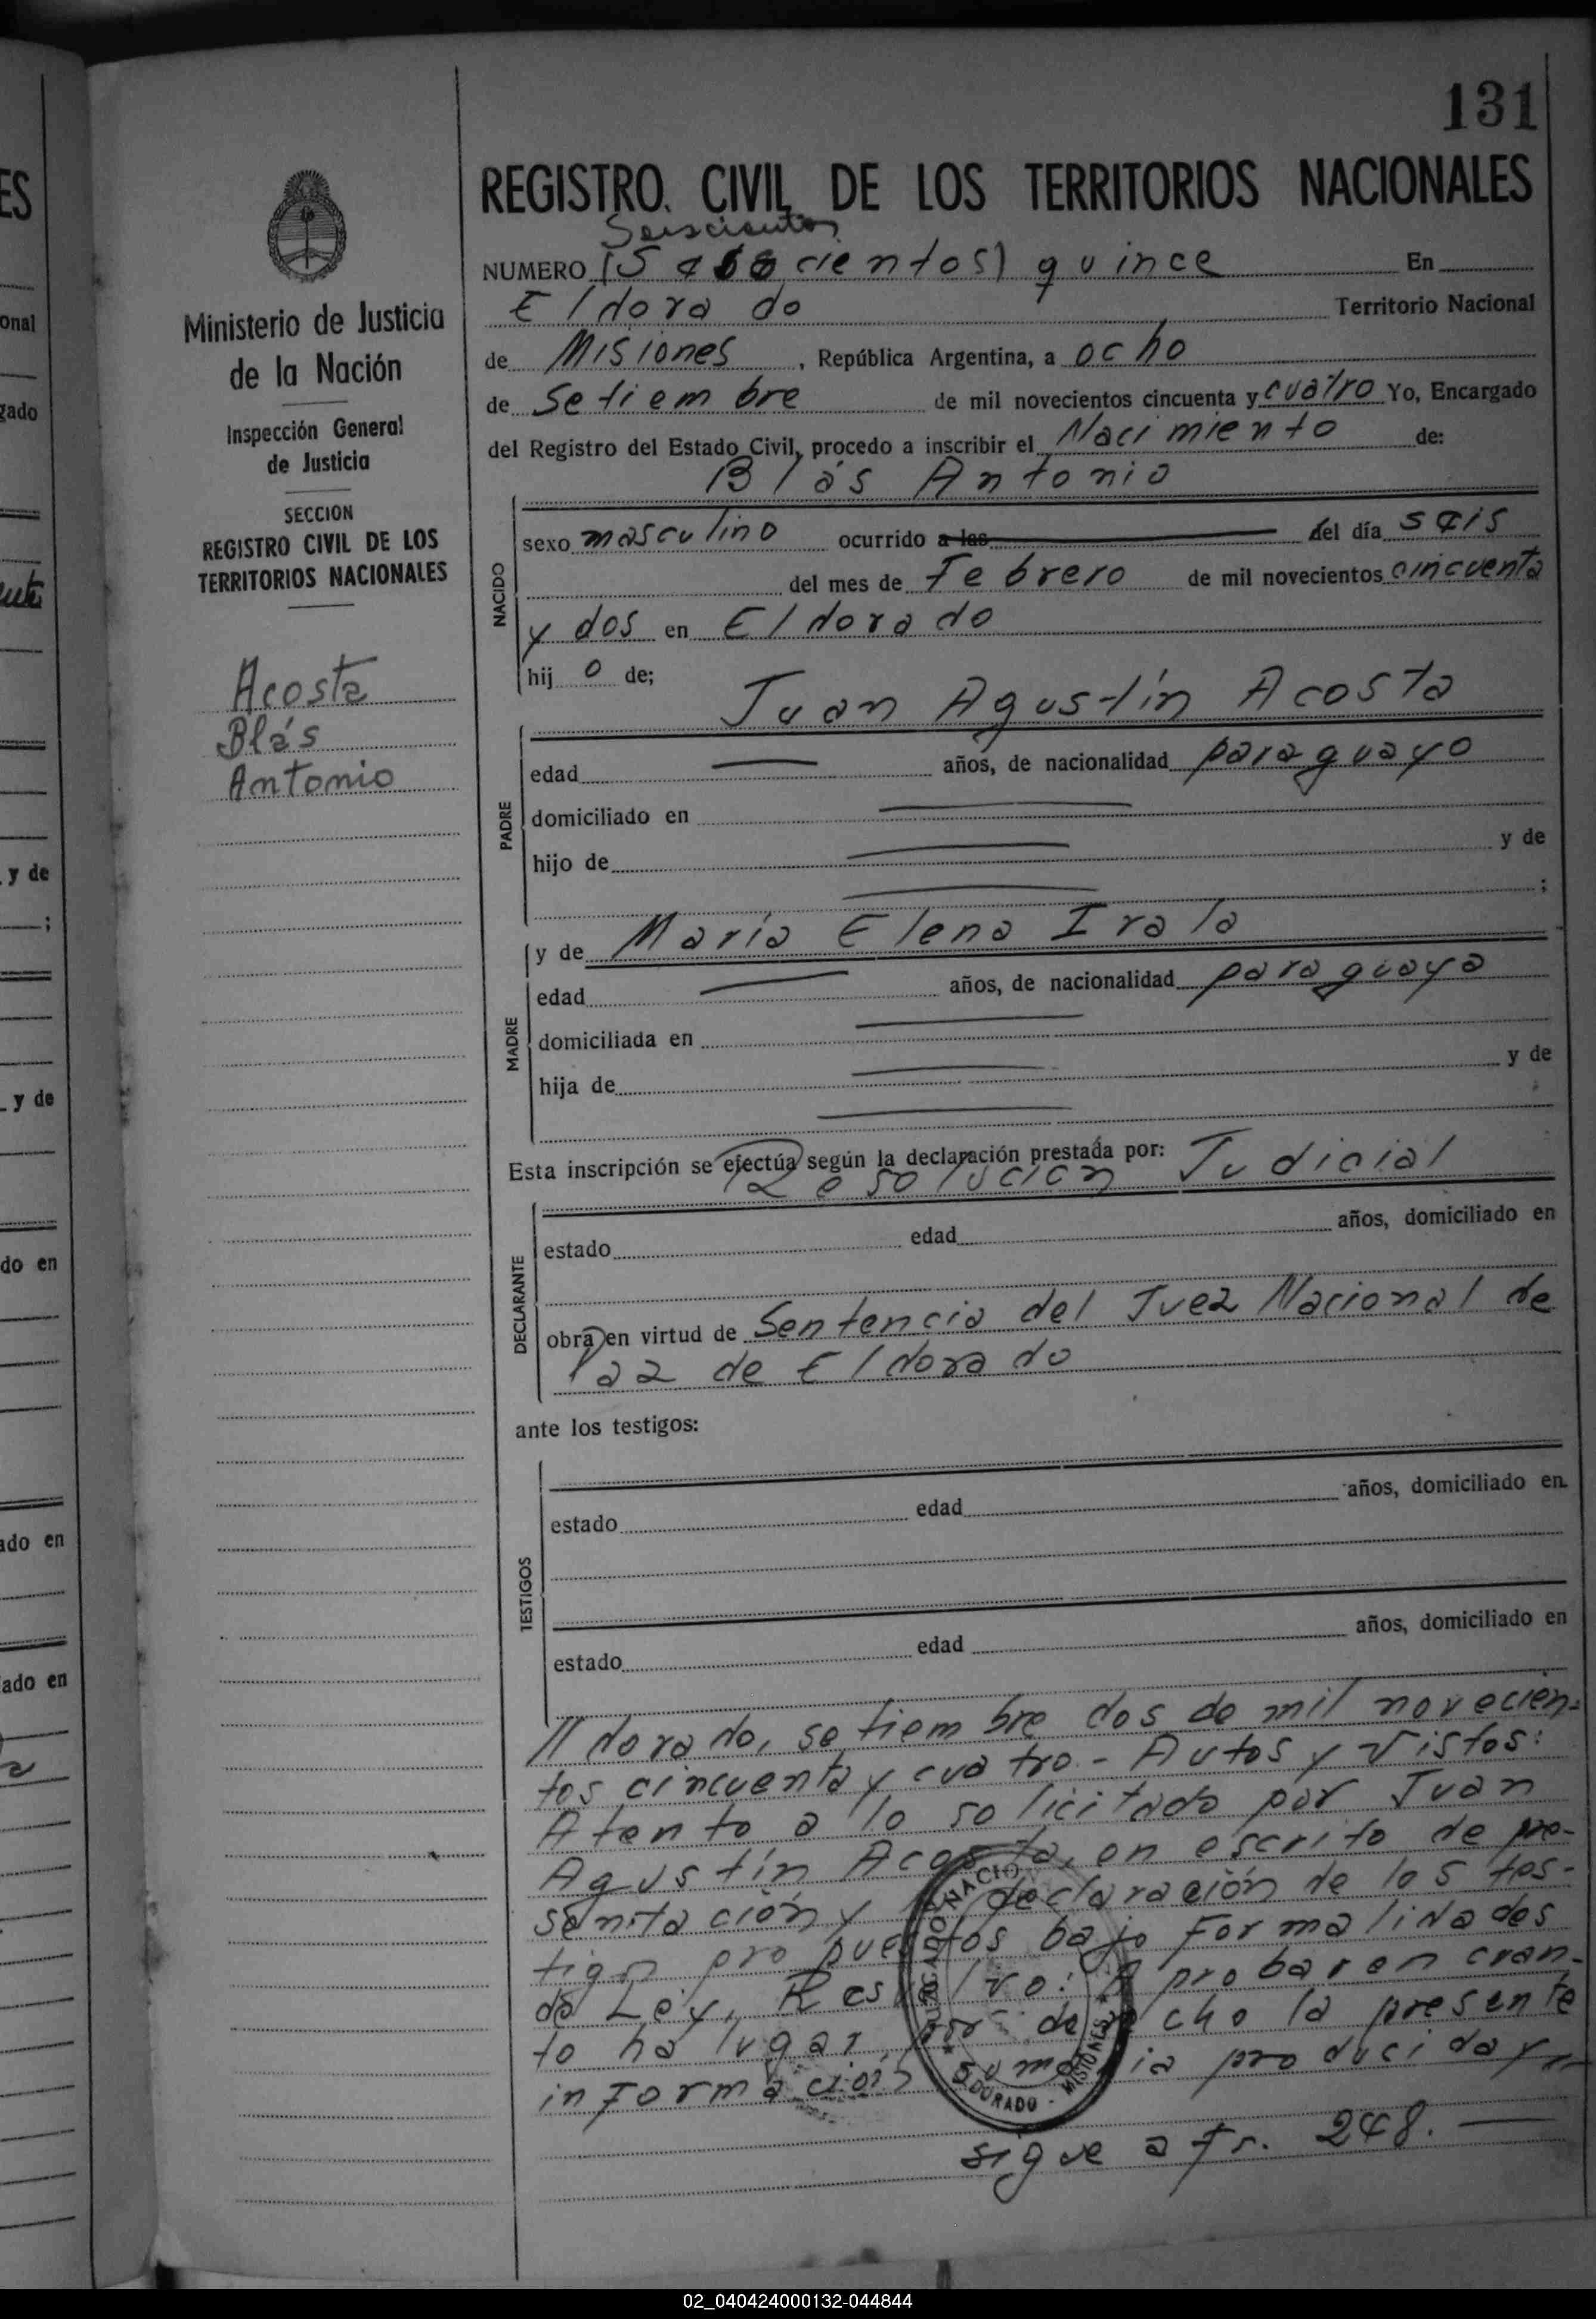 131
REGISTRO CIVIL DE LOS TERRITORIOS NACIONALES
Seiscientos
NUMERO (S cientos) quince En
Eldorado Territorio Nacional
de Misiones, República Argentina, a ocho
de Setiembre de mil novecientos cincuenta y cuatro Yo, Encargado
del Registro del Estado Civil, procedo a inscribir el Nacimiento de:
Blás Antonio
NACIDO
sexo masculino ocurrido a las del día seis
del mes de Febrero de mil novecientos cincuenta
y dos en Eldorado
hijo de;
Juan Agustín Acosta
PADRE
edad años, de nacionalidad paraguayo
domiciliado en
hijo de y de
;
y de María Elena Irala
MADRE
edad años, de nacionalidad paraguaya
domiciliada en
hija de y de
Esta inscripción se efectúa según la declaración prestada por: Judicial
Resolución
DECLARANTE
estado edad años, domiciliado en
obra en virtud de Sentencia del Juez Nacional de
Paz de Eldorado
ante los testigos:
TESTIGOS
estado edad años, domiciliado en
estado edad años, domiciliado en
ldorado, setiembre dos de mil novecien-
tos cincuenta y cuatro.- Autos y Vistos:
Atento a lo solicitado por Juan
Agustín Acosta, en escrito de pre-
sentación y declaración de los tes-
tigos propuestos bajo Formalidades
de Ley, Resuelvo: Aprobar en cuan-
to ha lugar por derecho la presente
información sumaria producida y
sigue a fs. 248.
JUZGADO NACIO
ELDORADO - MISIONES
Ministerio de Justicia
de la Nación
Inspección General
de Justicia
SECCION
REGISTRO CIVIL DE LOS
TERRITORIOS NACIONALES
Acosta
Blás
Antonio
ES
onal
gado
y de
;
y de
do en
ado en
ado en
02_040424000132-044844